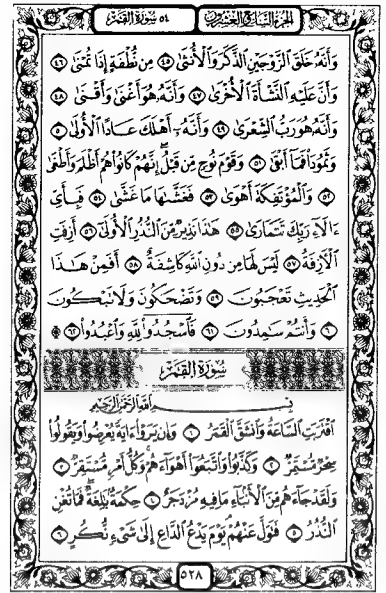 الجزء السابع والعشرون ٥٤ سورة القمر
وَأَنَّهُ خَلَقَ ٱلزَّوْجَيْنِ ٱلذَّكَرَ وَٱلْأُنثَىٰ ٤٥ مِن نُّطْفَةٍ إِذَا تُمْنَىٰ ٤٦
وَأَنَّ عَلَيْهِ ٱلنَّشْأَةَ ٱلْأُخْرَىٰ ٤٧ وَأَنَّهُ هُوَ أَغْنَىٰ وَأَقْنَىٰ ٤٨
وَأَنَّهُ هُوَ رَبُّ ٱلشِّعْرَىٰ ٤٩ وَأَنَّهُ أَهْلَكَ عَادًا ٱلْأُولَىٰ ٥٠
وَثَمُودَا۟ فَمَآ أَبْقَىٰ ٥١ وَقَوْمَ نُوحٍ مِّن قَبْلُ إِنَّهُمْ كَانُوا۟ هُمْ أَظْلَمَ وَأَطْغَىٰ
٥٢ وَٱلْمُؤْتَفِكَةَ أَهْوَىٰ ٥٣ فَغَشَّىٰهَا مَا غَشَّىٰ ٥٤ فَبِأَىِّ
ءَالَآءِ رَبِّكَ تَتَمَارَىٰ ٥٥ هَٰذَا نَذِيرٌ مِّنَ ٱلنُّذُرِ ٱلْأُولَىٰٓ ٥٦ أَزِفَتِ
ٱلْءَازِفَةُ ٥٧ لَيْسَ لَهَا مِن دُونِ ٱللَّهِ كَاشِفَةٌ ٥٨ أَفَمِنْ هَٰذَا
ٱلْحَدِيثِ تَعْجَبُونَ ٥٩ وَتَضْحَكُونَ وَلَا تَبْكُونَ
٦٠ وَأَنتُمْ سَٰمِدُونَ ٦١ فَٱسْجُدُوا۟ لِلَّهِ وَٱعْبُدُوا۟ ۩ ٦٢
سورة القمر
بِسْمِ ٱللَّهِ ٱلرَّحْمَٰنِ ٱلرَّحِيمِ
ٱقْتَرَبَتِ ٱلسَّاعَةُ وَٱنشَقَّ ٱلْقَمَرُ ١ وَإِن يَرَوْا۟ ءَايَةً يُعْرِضُوا۟ وَيَقُولُوا۟
سِحْرٌ مُّسْتَمِرٌّ ٢ وَكَذَّبُوا۟ وَٱتَّبَعُوٓا۟ أَهْوَآءَهُمْ وَكُلُّ أَمْرٍ مُّسْتَقِرٌّ ٣
وَلَقَدْ جَآءَهُم مِّنَ ٱلْأَنۢبَآءِ مَا فِيهِ مُزْدَجَرٌ ٤ حِكْمَةٌۢ بَٰلِغَةٌ فَمَا تُغْنِ
ٱلنُّذُرُ ٥ فَتَوَلَّ عَنْهُمْ يَوْمَ يَدْعُ ٱلدَّاعِ إِلَىٰ شَىْءٍ نُّكُرٍ ٦
٥٢٨